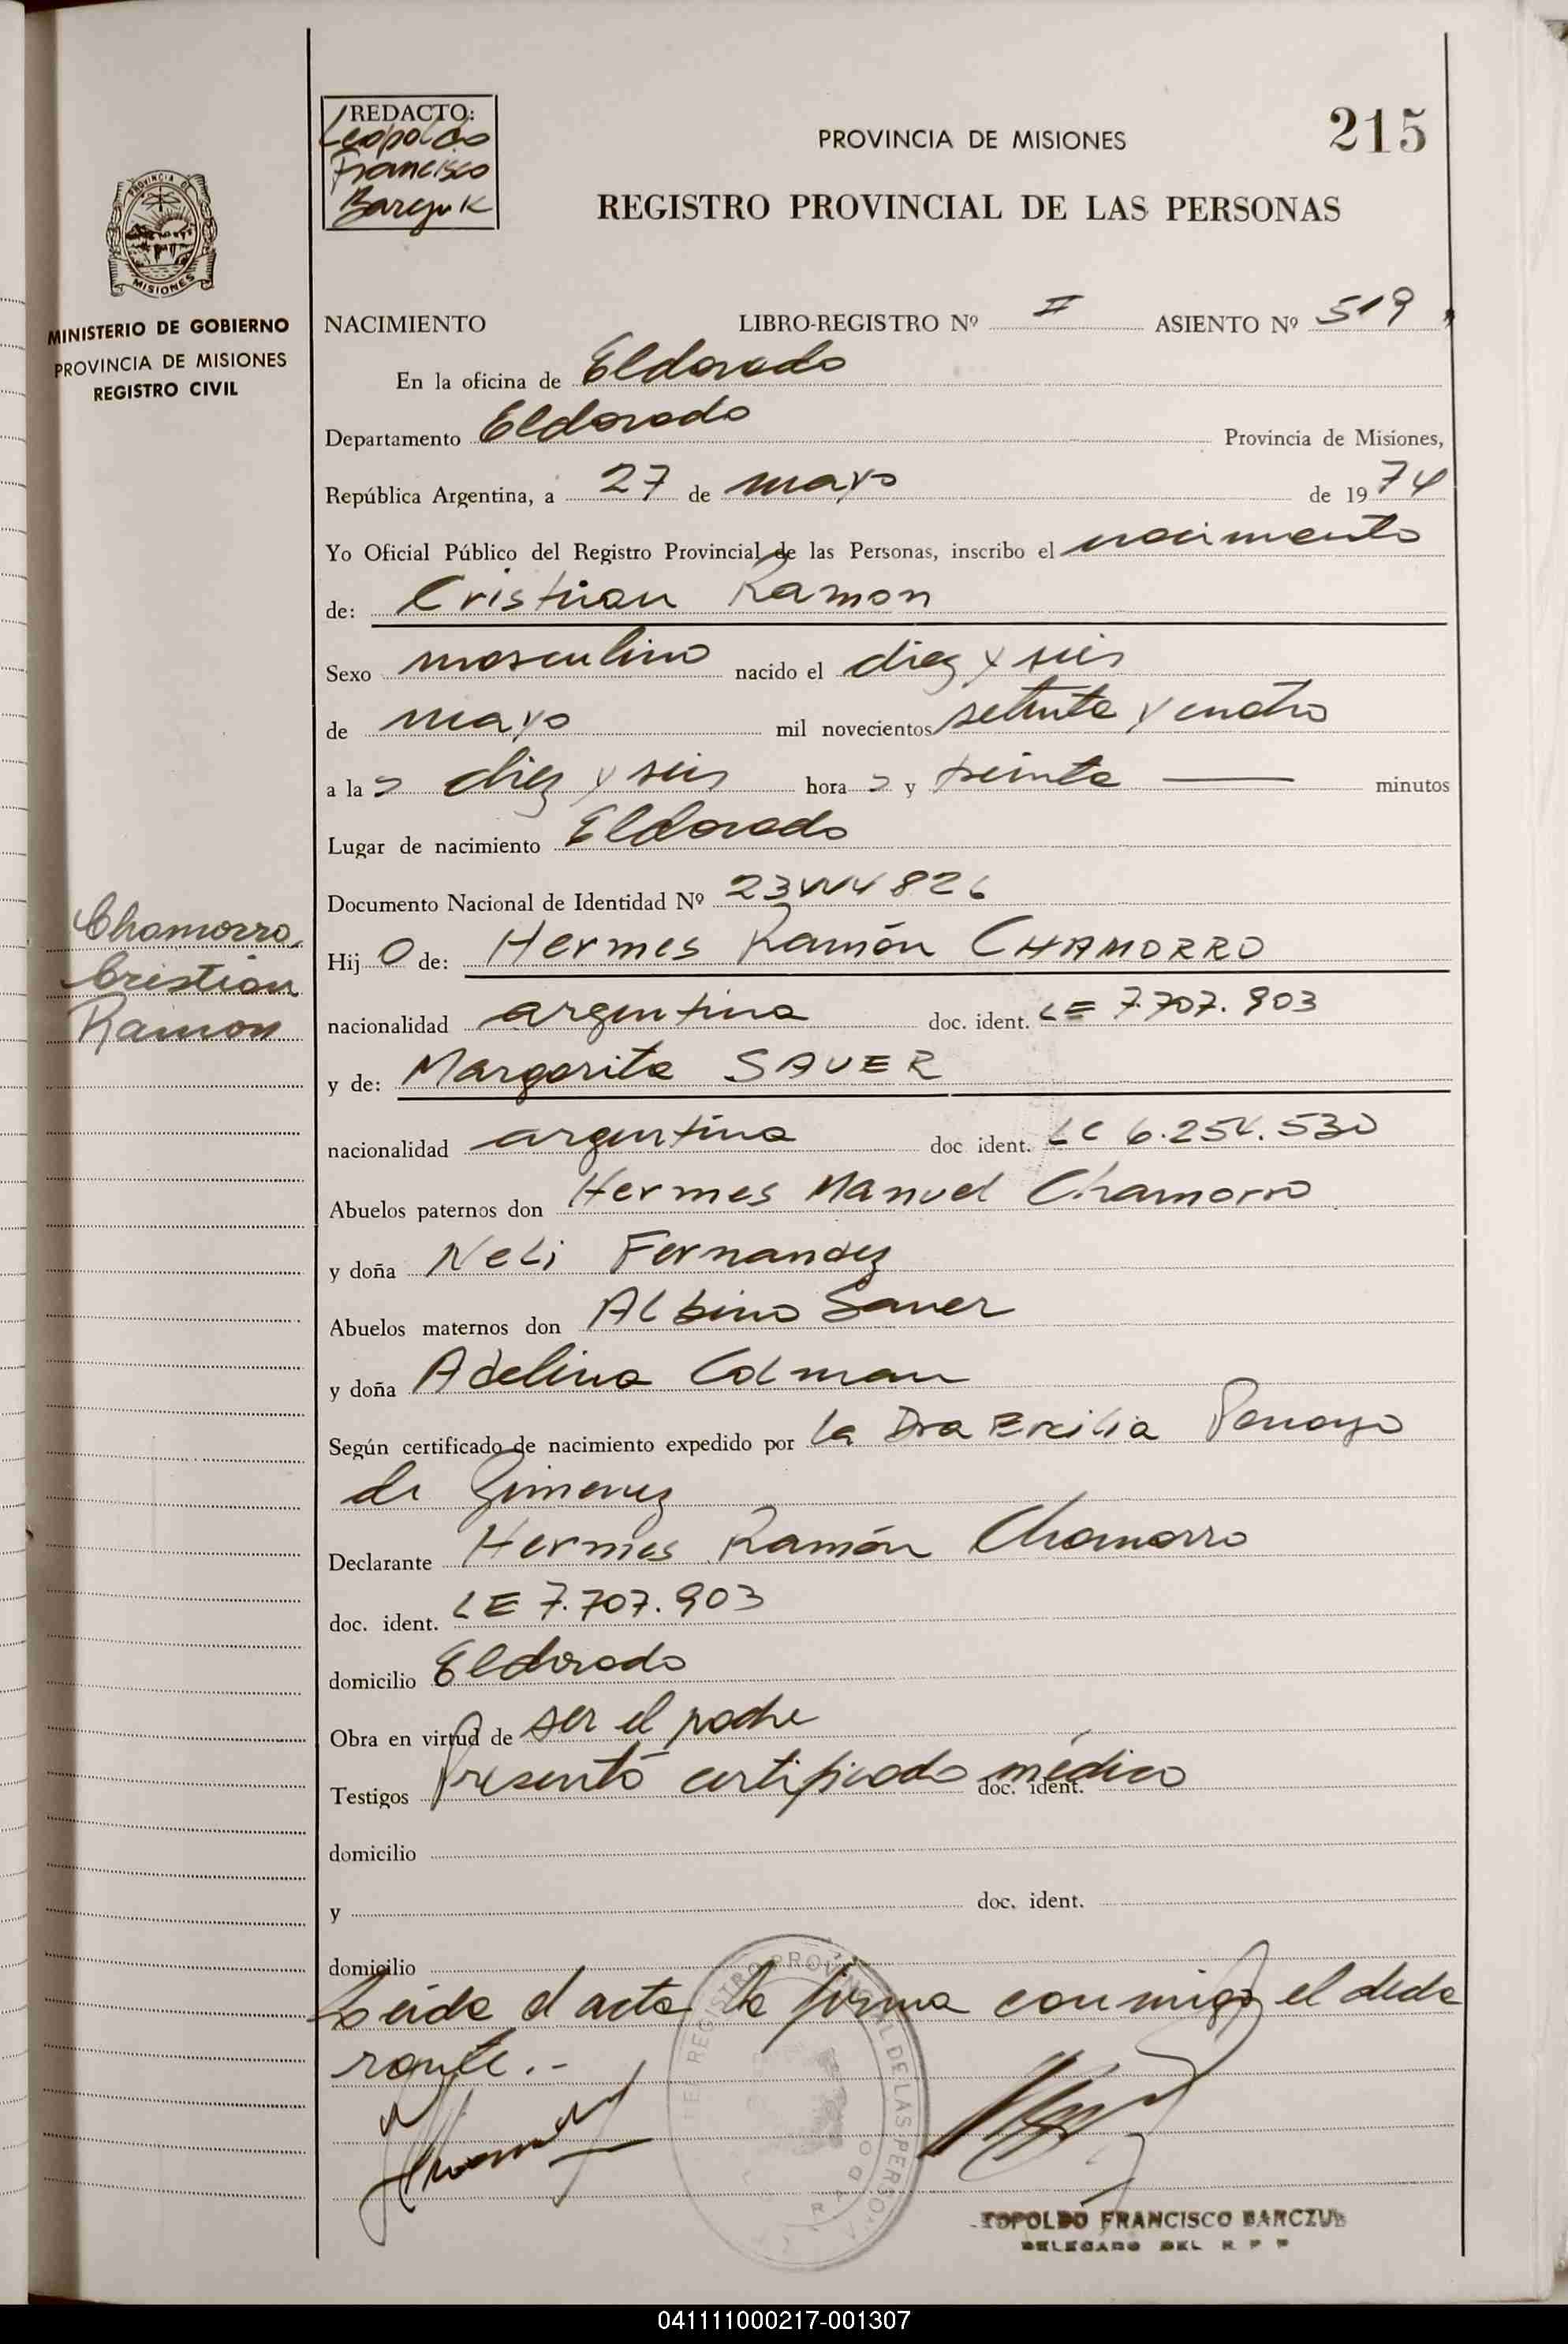 REDACTO:
Leopoldo
Francisco
Barczuk
PROVINCIA DE MISIONES
215
REGISTRO PROVINCIAL DE LAS PERSONAS
PROVINCIA DE
MISIONES
MINISTERIO DE GOBIERNO
PROVINCIA DE MISIONES
REGISTRO CIVIL
NACIMIENTO LIBRO-REGISTRO Nº II ASIENTO Nº 519
En la oficina de Eldorado
Departamento Eldorado Provincia de Misiones,
República Argentina, a 27 de mayo de 1974
Yo Oficial Público del Registro Provincial de las Personas, inscribo el nacimiento
de: Cristian Ramon
Sexo masculino nacido el diez y seis
de mayo mil novecientos setenta y cuatro
a las diez y seis horas y treinta minutos
Lugar de nacimiento Eldorado
Documento Nacional de Identidad Nº
Chamorro,
Cristian
Ramon
Hijo de: Hermes Ramón CHAMORRO
nacionalidad argentina doc. ident. LE 7.707.903
y de: Margarita SAUER
nacionalidad argentina doc ident. LC 6.254.530
Abuelos paternos don Hermes Manuel Chamorro
y doña Neli Fernandez
Abuelos maternos don Albino Sauer
y doña Adelina Colman
Según certificado de nacimiento expedido por la Dra Ercilia
de Gimenez
Declarante Hermes Ramón Chamorro
doc. ident. LE 7.707.903
domicilio Eldorado
Obra en virtud de ser el padre
Testigos Presentó certificado médico doc. ident.
domicilio
y doc. ident.
domicilio
Leida el acta la firma conmigo el decla
rante.-
REGISTRO PROVINCIAL DE LAS PERSONAS
LEOPOLDO FRANCISCO BARCZUK
DELEGADO DEL R P P
041111000217-001307